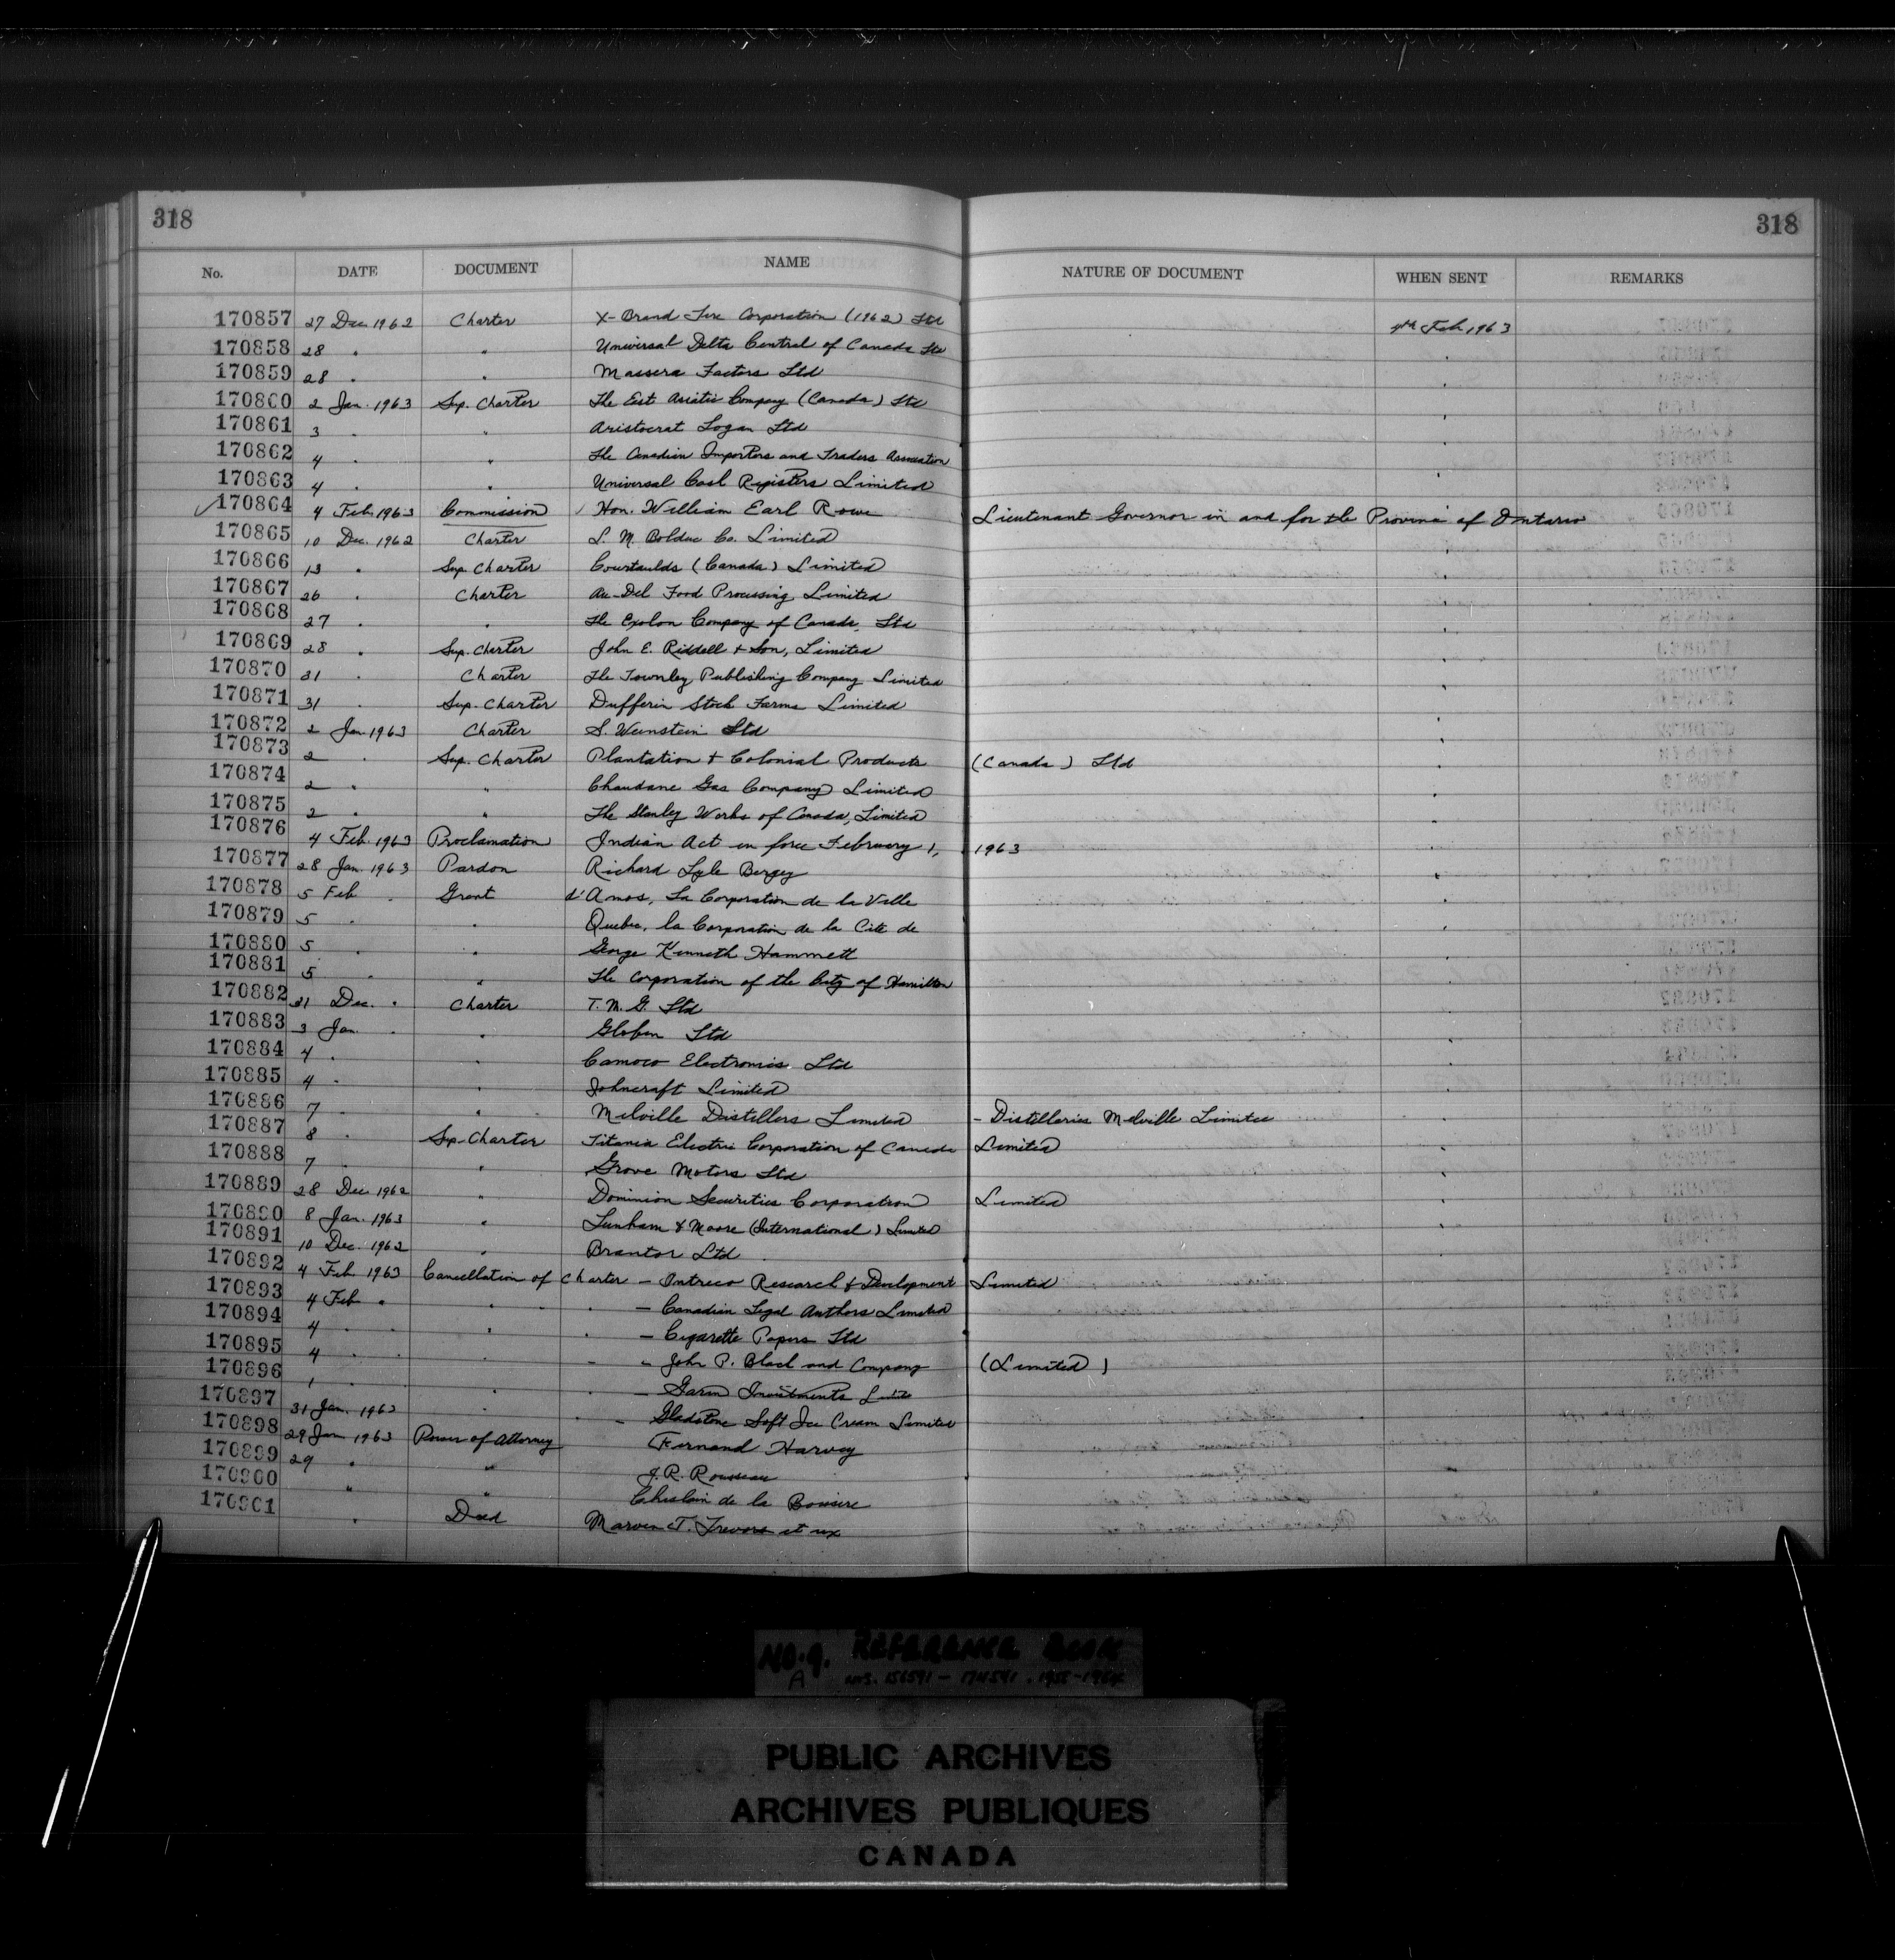 318 318
No. DATE DOCUMENT NAME NATURE OF DOCUMENT WHEN SENT REMARKS
170857 27 Dec. 1962 Charter X-Brand Tire Corporation (1962) Ltd 4th Feb, 1963
170858 28 . " Universal Delta Central of Canada Ltd .
170859 28 . " Massera Factors Ltd .
170860 2 Jan. 1963 Sup. Charter The East Asiatic Company (Canada) Ltd .
170861 3 . " Aristocrat Logan Ltd .
170862 4 . " The Canadian Importers and Traders Association .
170863 4 . " Universal Cash Registers Limited .
170864 4 Feb. 1963 Commission Hon. William Earl Rowe Lieutenant Governor in and for the Province of Ontario
170865 10 Dec. 1962 Charter L. M. Bolduc Co. Limited .
170866 13 . Sup. Charter Courtaulds (Canada) Limited .
170867 26 . Charter Au-Del Food Processing Limited .
170868 27 . " The Exolon Company of Canada, Ltd .
170869 28 . Sup. Charter John E. Riddell & Son, Limited .
170870 31 . Charter The Townley Publishing Company Limited .
170871 31 . Sup. Charter Dufferin Stock Farms Limited .
170872 2 Jan 1963 Charter S. Weinstein Ltd .
170873 2 . Sup. Charter Plantation & Colonial Products (Canada) Ltd .
170874 2 . " Gas Company Limited .
170875 2 . " The Stanley Works of Canada, Limited .
170876 4 Feb. 1963 Proclamation Indian Act in force February 1, 1963 .
170877 28 Jan. 1963 Pardon Richard Lyle Bergey .
170878 5 Feb . Grant d'Amos, La Corporation de la Ville .
170879 5 . " Quebec, la Corporation de la Cité de .
170880 5 . " George Kenneth Hammett .
170881 5 . " The Corporation of the City of Hamilton .
170882 31 Dec. . Charter T. M. G. Ltd .
170883 3 Jan. . " Ltd .
170884 4 . " Camoco Electronics Ltd .
170885 4 . " Johncraft Limited .
170886 7 . " Melville Distillers Limited - Distilleries Melville Limitee .
170887 8 . Sup. Charter Titania Electric Corporation of Canada Limited .
170888 7 . " Grove Motors Ltd .
170889 28 Dec 1962 " Dominion Securities Corporation Limited .
170890 8 Jan. 1963 " Lunham & Moore (International) Limited .
170891 10 Dec. 1962 " Brantor Ltd .
170892 4 Feb 1963 Cancellation of Charter - Intreco Research & Development Limited
170893 4 Feb . " " - Canadian Legal Authors Limited
170894 4 . " " - Cigarette Papers Ltd
170895 4 . " " - John P. Black and Company (Limited)
170896 1 . " " - Investments
170897 31 Jan. 1963 " " - Gladstone Soft Ice Cream Limited
170898 29 Jan 1963 Power of Attorney Fernand Harvey
170899 29 . " J. R. Rousseau
170900 " " Ghislain de la
170901 . Deed Marvin T. Trevors et ux
NO. 9. REFERENCE BOOK
A NOS. 156591 - 174591 . 1955-1964
PUBLIC ARCHIVES
ARCHIVES PUBLIQUES
CANADA